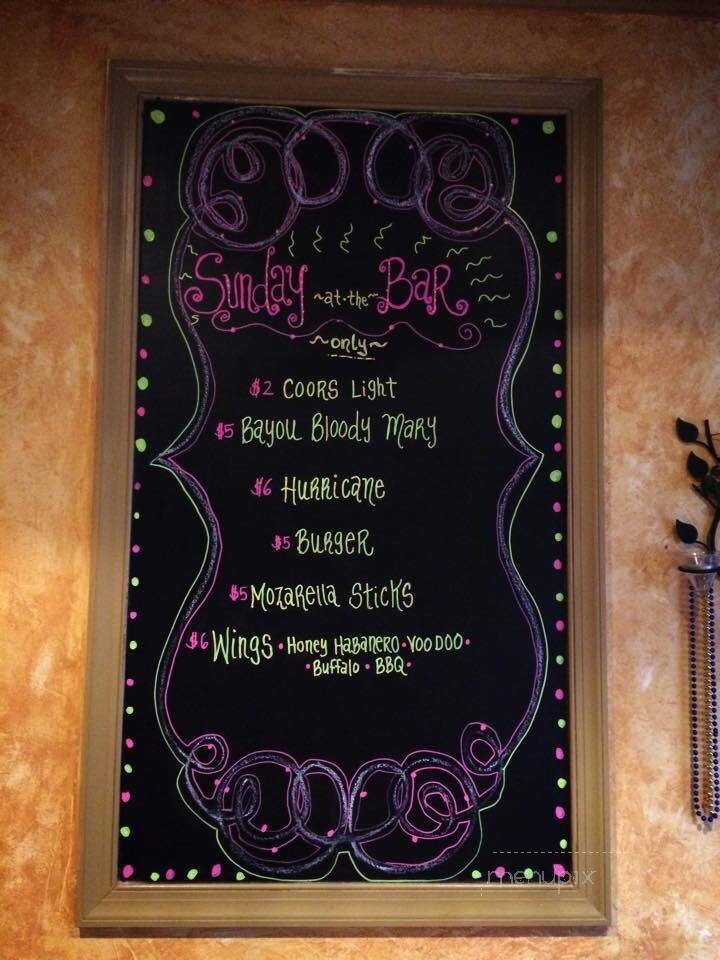 Sunday ~at·the~ Bar
~only~
$2 Coors Light
$5 Bayou Bloody Mary
$6 Hurricane
$5 Burger
$5 Mozarella Sticks
$6 Wings • Honey Habanero • Voo Doo •
• Buffalo • BBQ •
menupix